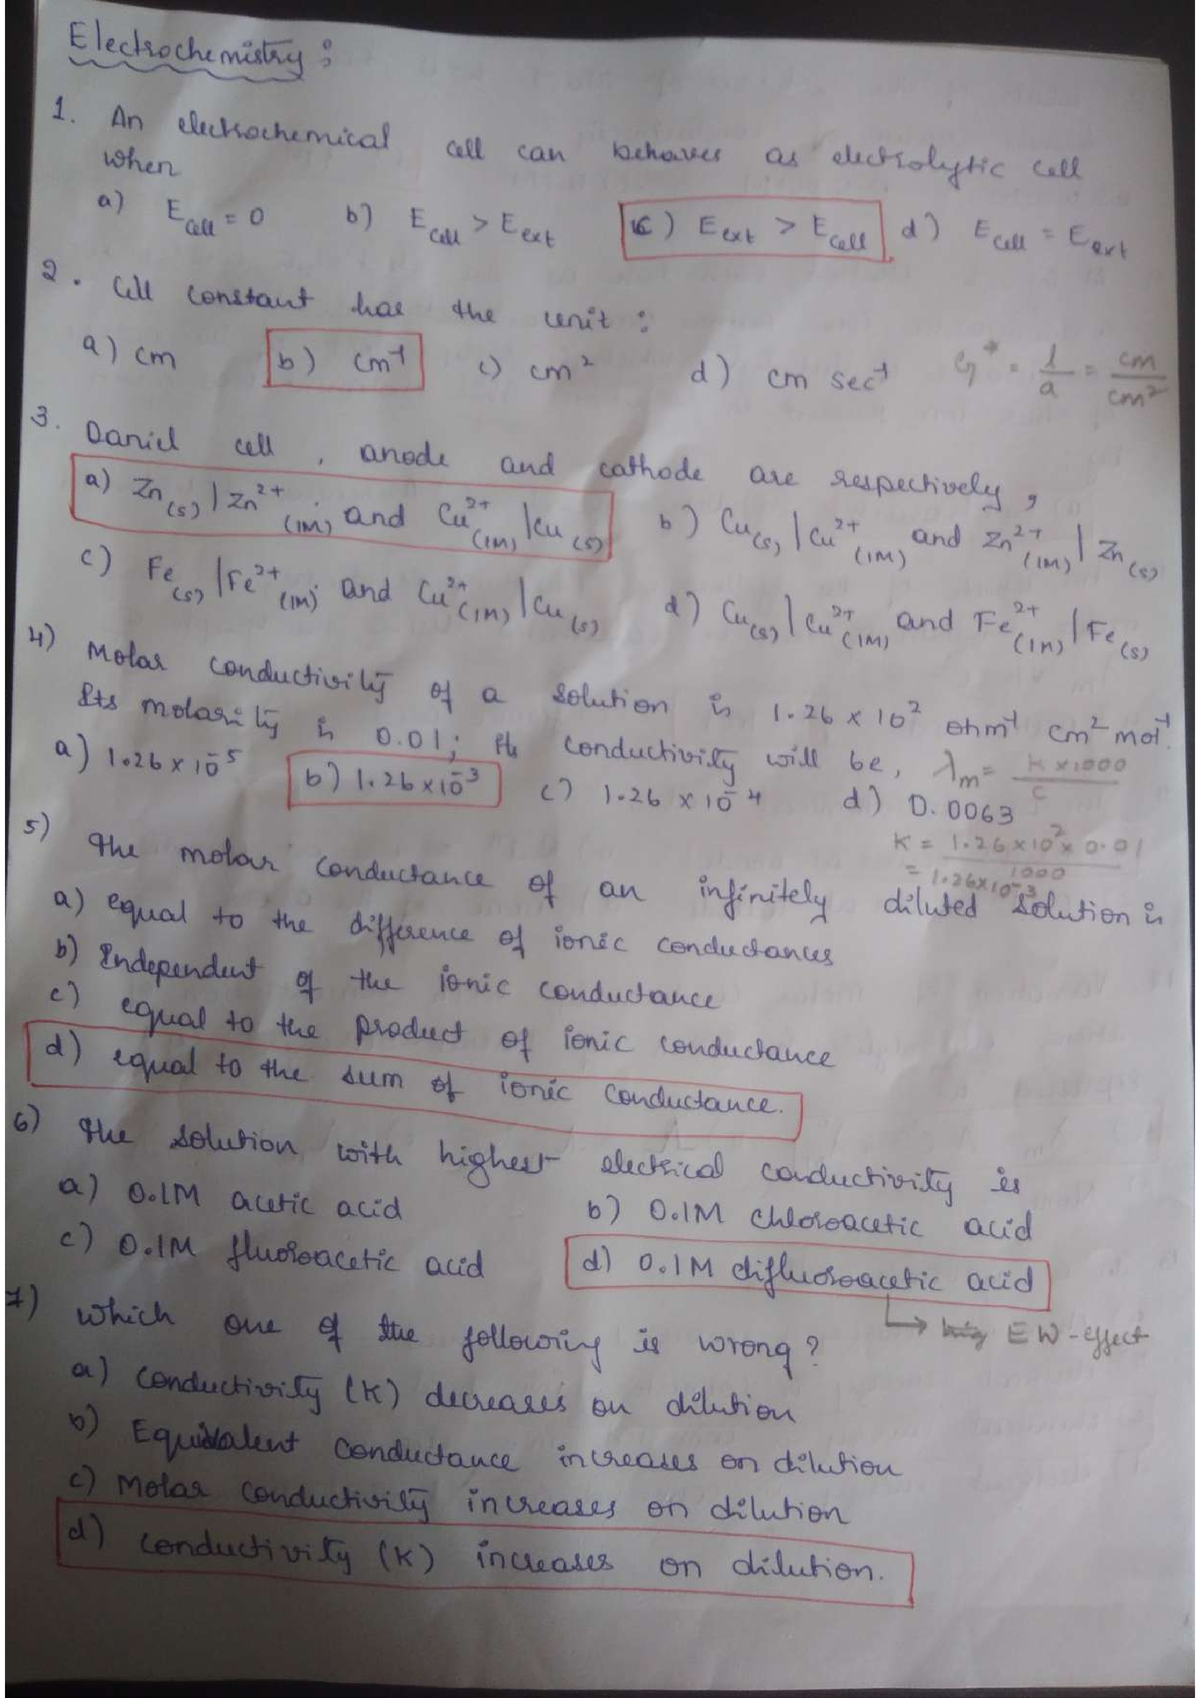 Electrochemistry :
1. An electrochemical cell can behaves as electrolytic cell
when
a) E cell = 0 b) E cell > E ext c) E ext > E cell d) E cell = E ext
2. Cell constant has the unit :
a) cm b) cm⁻¹ c) cm² d) cm sec⁻¹ G* = l/a = cm/cm²
3. Daniel cell, anode and cathode are respectively,
a) Zn(s) | Zn²⁺(1M) and Cu²⁺(1M) | Cu(s) b) Cu(s) | Cu²⁺(1M) and Zn²⁺(1M) | Zn(s)
c) Fe(s) | Fe²⁺(1M) and Cu²⁺(1M) | Cu(s) d) Cu(s) | Cu²⁺(1M) and Fe²⁺(1M) | Fe(s)
4) Molar conductivity of a solution is 1.26 × 10² ohm⁻¹ cm² mol⁻¹.
Its molarity is 0.01; Its conductivity will be, λm = K × 1000 / C
a) 1.26 × 10⁻⁵ b) 1.26 × 10⁻³ c) 1.26 × 10⁻⁴ d) 0.0063
K = 1.26 × 10² × 0.01 / 1000
= 1.26 × 10⁻³
5) The molar conductance of an infinitely diluted solution is
a) equal to the difference of ionic conductances
b) Independent of the ionic conductance
c) equal to the product of ionic conductance
d) equal to the sum of ionic conductance.
6) The solution with highest electrical conductivity is
a) 0.1M acetic acid b) 0.1M chloroacetic acid
c) 0.1M fluoroacetic acid d) 0.1M difluoroacetic acid
→ EW-effect
7) Which one of the following is wrong?
a) conductivity (K) decreases on dilution
b) Equivalent conductance increases on dilution
c) Molar conductivity increases on dilution
d) conductivity (K) increases on dilution.